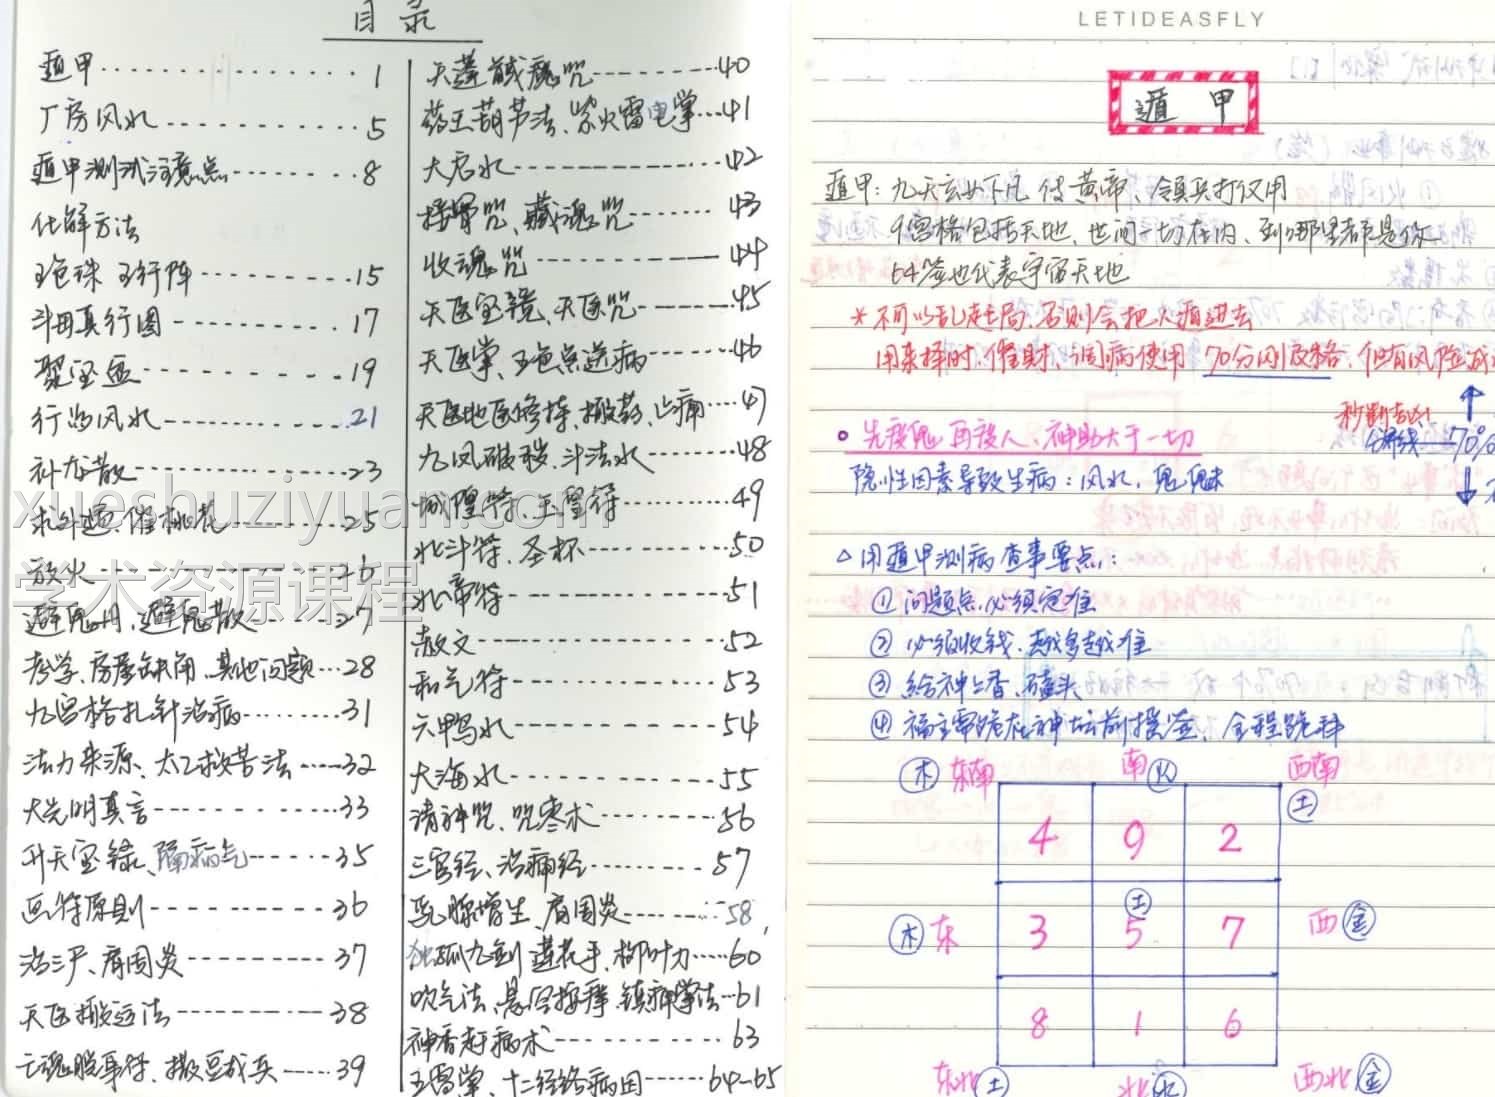 目录
遁甲 1
厂房风水 5
遁甲测试注意点 8
化解方法
五色珠 五行阵 15
斗田真行图 17
聚宝盆 19
行为风水 21
补龙散 23
求外遇、催桃花 25
放火 26
避鬼丹、避鬼散 27
考学、房屋缺角、其他问题 28
九宫格扎针治病 31
法力来源、太乙救苦法 32
大光明真言 33
升天宝录、隔病气 35
画符原则 36
治三尸、肩周炎 37
天医搬运法 38
亡魂脱身符、撒豆成兵 39
天蓬馘魔咒 40
药王葫芦法、紫火雷电掌 41
大启水 42
接骨咒、藏魂咒 43
收魂咒 44
天医宝镜、天医咒 45
天医掌、五色点送病 46
天医地医修持、搬药、止痛 47
九凤破秽、斗法水 48
城隍符、玉皇符 49
北斗符、圣杯 50
北帝符 51
散文 52
和气符 53
六鸭水 54
大海水 55
请神咒、咒枣术 56
三官经、治病经 57
乳腺增生、肩周炎 58
独孤九剑 莲花手、柳叶刀 60
吹气法、悬空按摩 镇痛掌法 61
神香赶病术 63
五雷掌、十二经络病因 64-65
xueshuziyuan.com
学术资源课程
LETIDEASFLY
遁甲
遁甲：九天玄女下凡 传黄帝、领兵打仗用
9宫格包括天地、世间一切在内、到哪里都是你
64签也代表宇宙天地
*不可以乱起局，否则会把人遁进去
用来择时、催财、调病使用 70分刚及格，但有风险
秒断吉凶
分界线 70%
先度鬼 再度人、神助大于一切
隐性因素导致生病：风水，鬼魅
△用遁甲测病查事要点：
①问题点必须定准
②必须收钱、越多越准
③给神上香、磕头
④福主需跪在神坛前摸签、全程跪拜
木 东南 南 火 西南 土
4 9 2
木 东 3 土 5 7 西 金
8 1 6
东北 土 北 水 西北 金